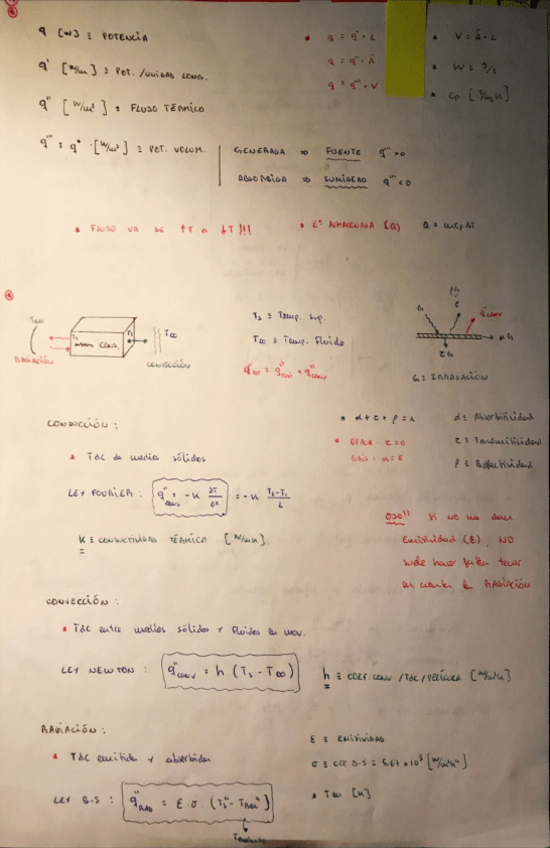 q [W] ≡ POTENCIA
q' [W/m] ≡ POT. /UNIDAD LONG.
q'' [W/m²] ≡ FLUJO TÉRMICO
q''' ≡ q° [W/m³] ≡ POT. VOLUM.
q = q' · L
q = q'' · A
q = q''' · V
V = A · L
W = J/s
Cp [J/kg K]
GENERADA ⇒ FUENTE q''' > 0
ABSORBIDA ⇒ SUMIDERO q''' < 0
* FLUJO VA DE ↑T a ↓T!!!
* Eª ALMACENADA (Q) Q = mcpΔT
RADIACIÓN
Ts
T∞
CONVECCIÓN
Ts ≡ Temp. sup.
T∞ ≡ Temp. Fluido
G ≡ IRRADIACIÓN
CONDUCCIÓN:
* TdC de medios sólidos
LEY FOURIER: q''cond = -K ∂T/∂x = -K
K ≡ CONDUCTIVIDAD TÉRMICA [W/mK]
* α+τ+ρ = 1
* OPACA: τ=0
GRIS: α=ε
α ≡ Absortividad
τ ≡ Transmitividad
ρ ≡ Reflectividad
OJO!! Si NO me dan
Emisividad (ε), NO
suele hacer falta tener
en cuenta la RADIACIÓN
CONVECCIÓN:
* TdC entre medios sólidos y fluidos en mov.
LEY NEWTON: q''conv = h (Ts - T∞)
h ≡ COEF. CONV /TdC/PELÍCULA [W/m²K]
RADIACIÓN:
* TdC emitida y absorbida
LEY B-S: q''RAD = ε·σ·(Ts⁴ -
ε ≡ EMISIVIDAD
σ ≡ CTE B-S = 5.67 × 10⁻⁸ [W/m²K⁴]
* T en [K]